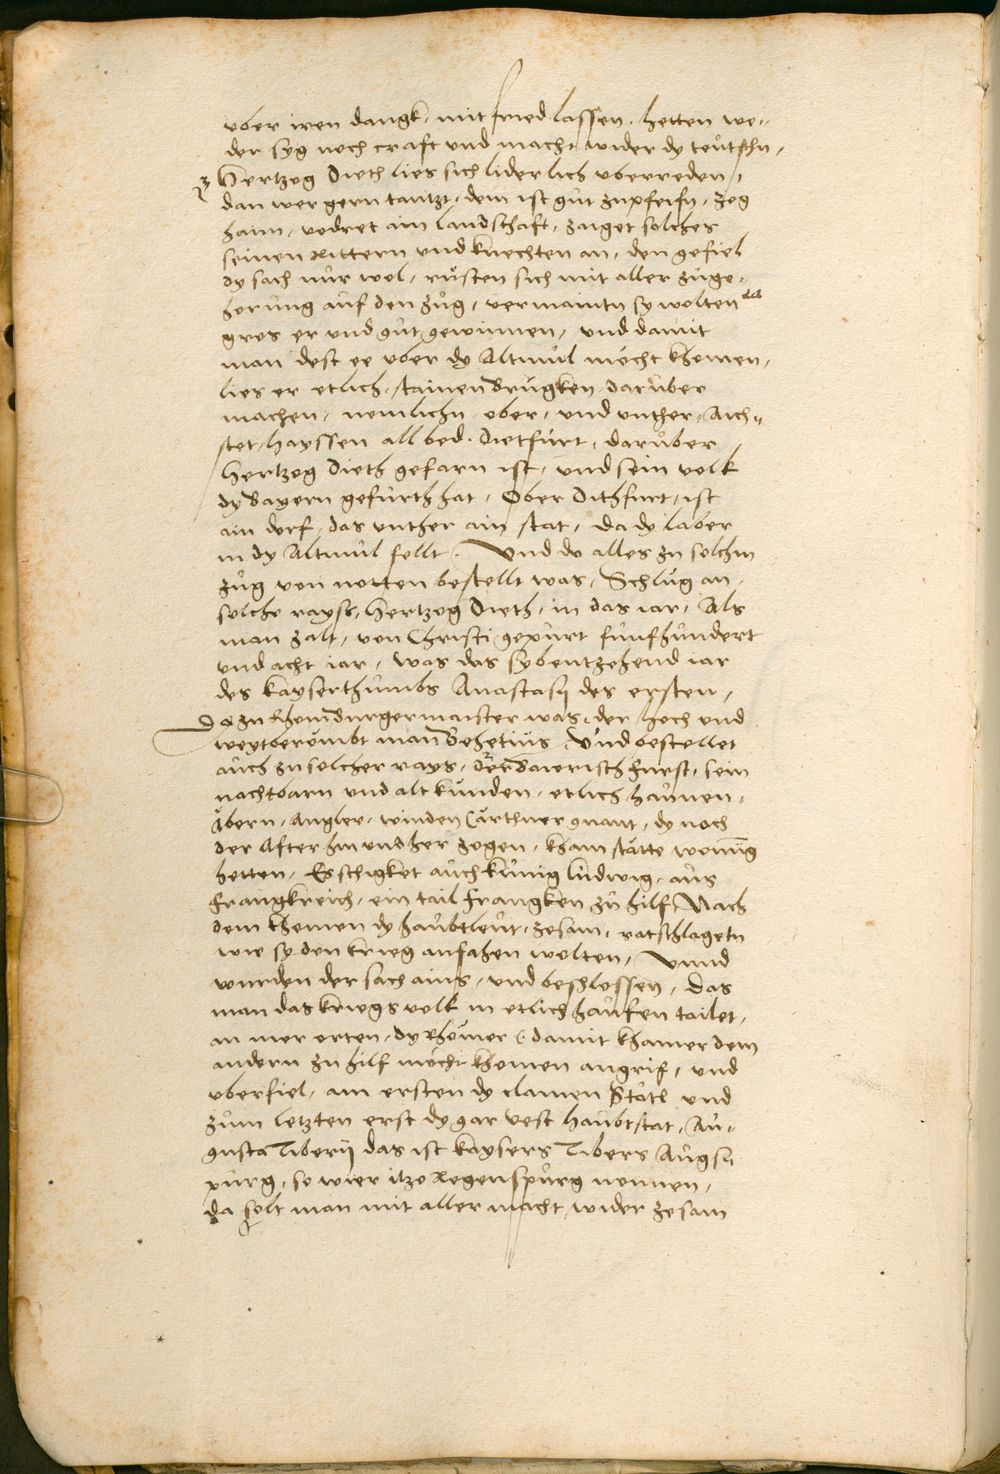 vber iren dangk, mit fried lassen, hetten we-
der syg noch craft vnd macht wider dy teůtschn,
Hertzog Dieth lies sich liderlich vberreden,
dan wer gern tantzt, dem ist gůt zupfeifn, zog
haim, vodret ain landschaft, zaiget solches
seinen Rittern vnd knechten an, den gefiel
dy sach nůr wol, růsten sich mit aller zůge-
horůng aůf den zůg, vermaintn sy wolten
gros er vnd gůt gewinnen, vnd damit
man dest ee vber dy Altmůl mócht khomen,
lies er etlich stainen Brůgken darůber
machen, nemlichn ober, vnd vnther, Aich-
stet, hayssen all bed. Dietfůrt, darůber
Hertzog Dieth gefarn ist, vnd sein volk
dy Bayern gefůrth hat, Ober Dithfurt, ist
ain dorf, das vnther ain stat, da dy laber
in dy Altmůl fellt. Vnd do alles zu solchm
zůg von notten bestellt was, Schlůg an
solche rayss, Hertzog Dieth, in das iar, Als
man zalt, von Christi gepůrt fůnfhůndert
vnd acht iar, Was das sybentzehend iar
des kayserthůmbs Anastasij des ersten,
Da zu Rhom Burgermaister was, der hoch vnd
weytberůmbt man Bohetiůs, Vnd bestellet
aůch zu solcher rays, der Bairisch fůrst, sein
nachtbarn vnd alt kůnden, etlich haůnen,
Åbern, Angler, winden Cårthner gnant, dy noch
der After hin vnd her zogen, kham stätte wonůng
hetten, Es schigket aůch kůnig Ludwig, aůs
frangkreich, ein tail frangken zů hilf, Nach
dem khomen dy haůbtleůt, zesam, ratschlagetn
wie sy den krieg anfahen wolten, Vnnd
wurden der sach ains, vnd beschlossen, das
man das kriegs volk in etlich haůfen tailet,
an mer orten, dy Rhömer (damit khainer dem
andern zu hilf mócht khomen angrif, vnd
vberfiel, am ersten dy clainen Städ vnd
zům letzten erst dy gar vest haůbtstat, Aů-
gusta Tiberij das ist kaysers Tibers Aůgsp
půrg, so wier itzo Regenspůrg nennen,
da solt man mit aller macht, wider zesam